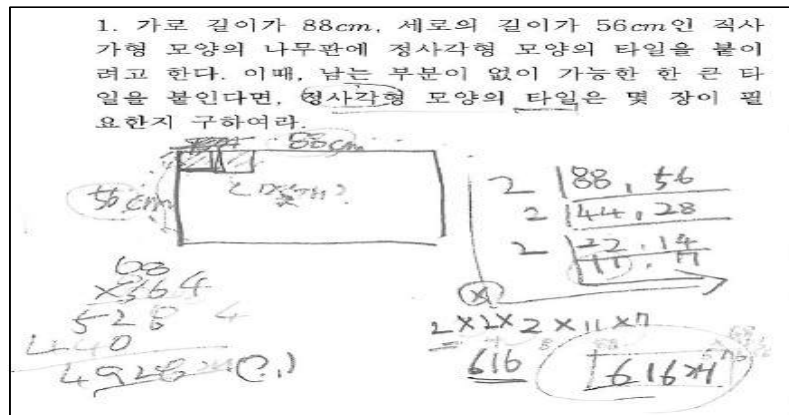 1. 가로 길이가 88cm, 세로의 길이가 56cm인 직사
가형 모양의 나무판에 정사각형 모양의 타일을 붙이
려고 한다. 이때, 남는 부분이 없이 가능한 한 큰 타
일을 붙인다면, 정사각형 모양의 타일은 몇 장이 필
요한지 구하여라.
88cm
56cm
2 88, 56
2 44, 28
2 22, 14
11, 7
×
2×2×2×11×7
=
616
616개
528
4928
(?)